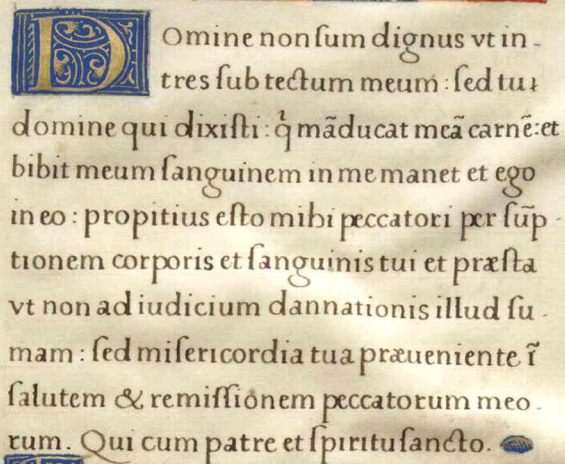 Domine non ſum dignus vt in-
tres ſub tectum meum: ſed tu
domine qui dixiſti: q̇ mãducat meã carnẽ: et
bibit meum ſanguinem in me manet et ego
in eo: propitius eſto mihi peccatori per ſũp-
tionem corporis et ſanguinis tui et præſta
vt non ad iudicium dannationis illud ſu-
mam: ſed miſericordia tua præueniente ĩ
ſalutem & remiſſionem peccatorum meo-
rum. Qui cum patre et ſpiritu ſancto.